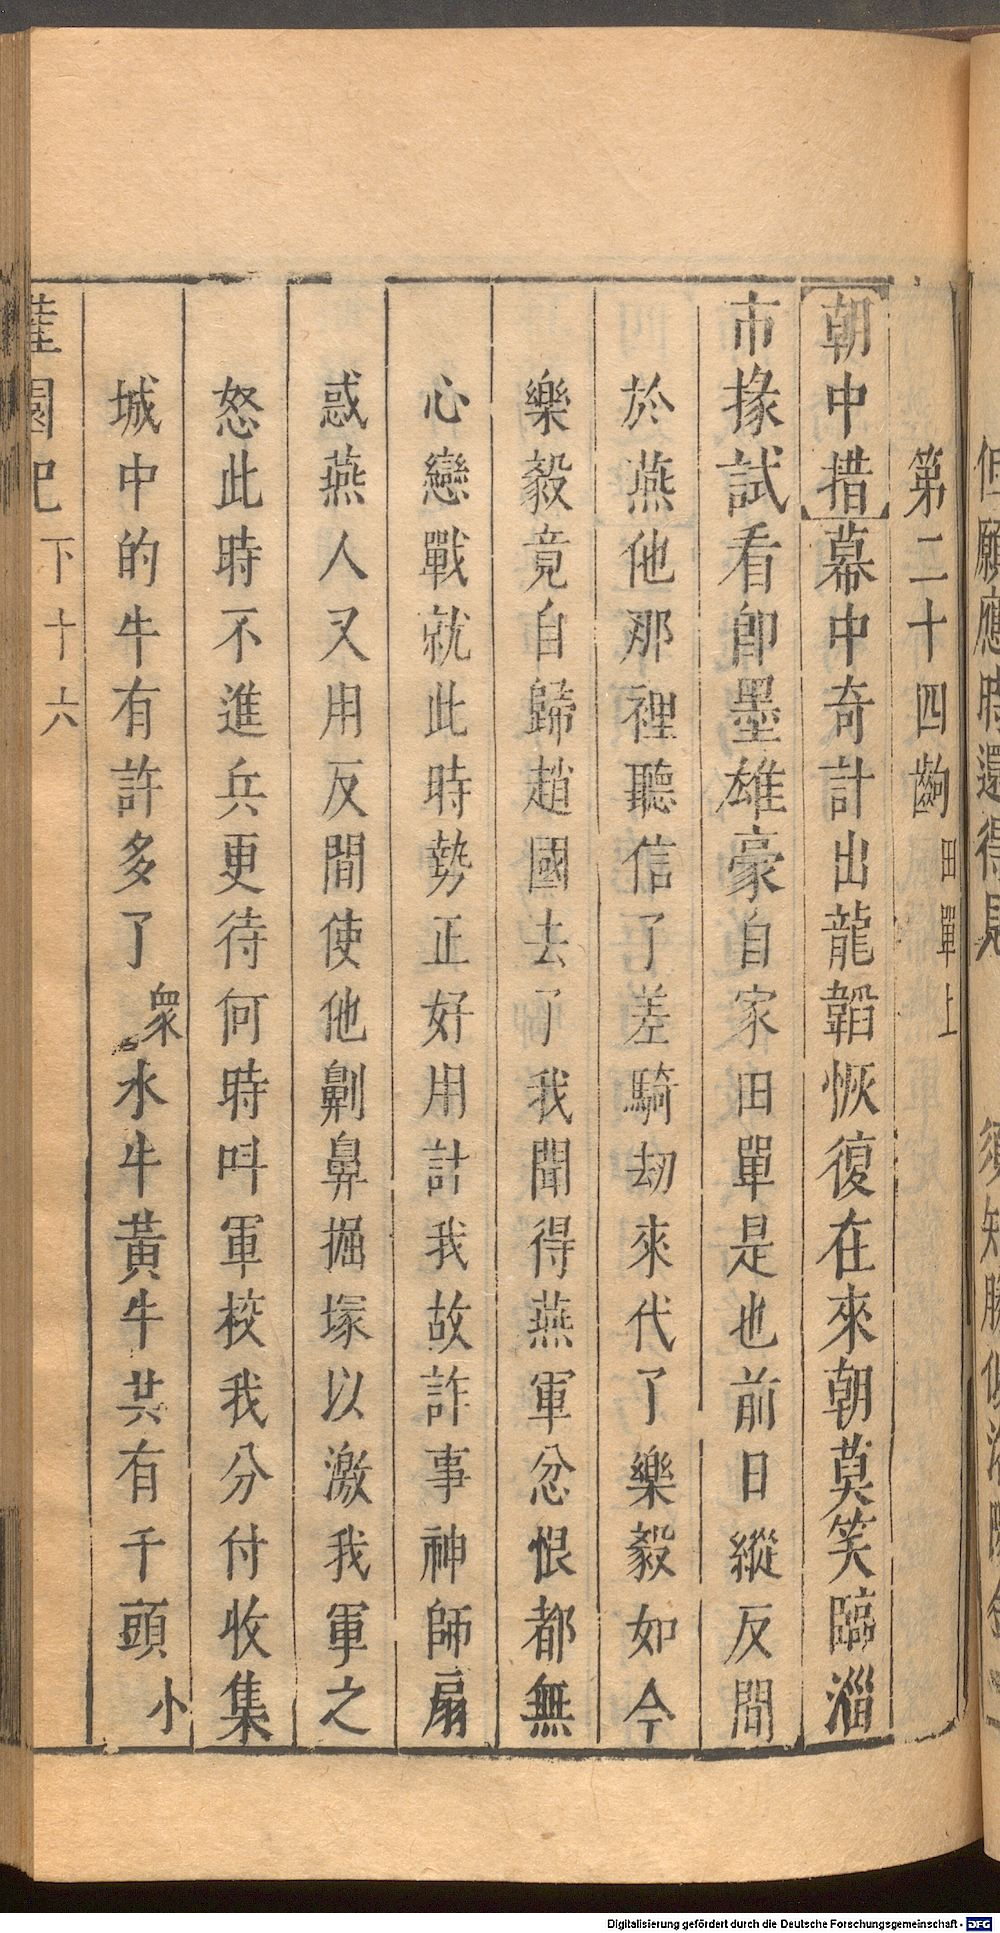 但願應時還得見　須知勝似
第二十四齣田單上
朝中措幕中奇計出龍韜恢復在來朝莫笑臨淄
市掾試看卽墨雄豪自家田單是也前日縱反間
於燕他那裡聽信了差騎刼來代了樂毅如今
樂毅竟自歸趙國去了我聞得燕軍忿恨都無
心戀戰就此時勢正好用計我故詐事神師扇
惑燕人又用反間使他劓鼻掘塚以激我軍之
怒此時不進兵更待何時叫軍校我分付收集
城中的牛有許多了衆水牛黃牛共有千頭小
園記　下十六
Digitalisierung gefördert durch die Deutsche Forschungsgemeinschaft - DFG